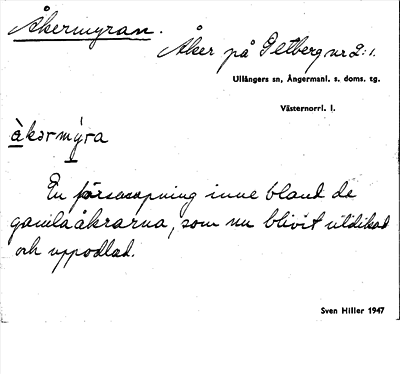 Åkermyran.
Åker på Öltberg nr 2:1.
Ullångers sn, Ångermanl. s. doms. tg.
Västernorrl. l.
àkərmy̌ra
En försumpning inne bland de
gamla åkrarna, som nu blivit utdikad
och uppodlad.
Sven Hiller 1947